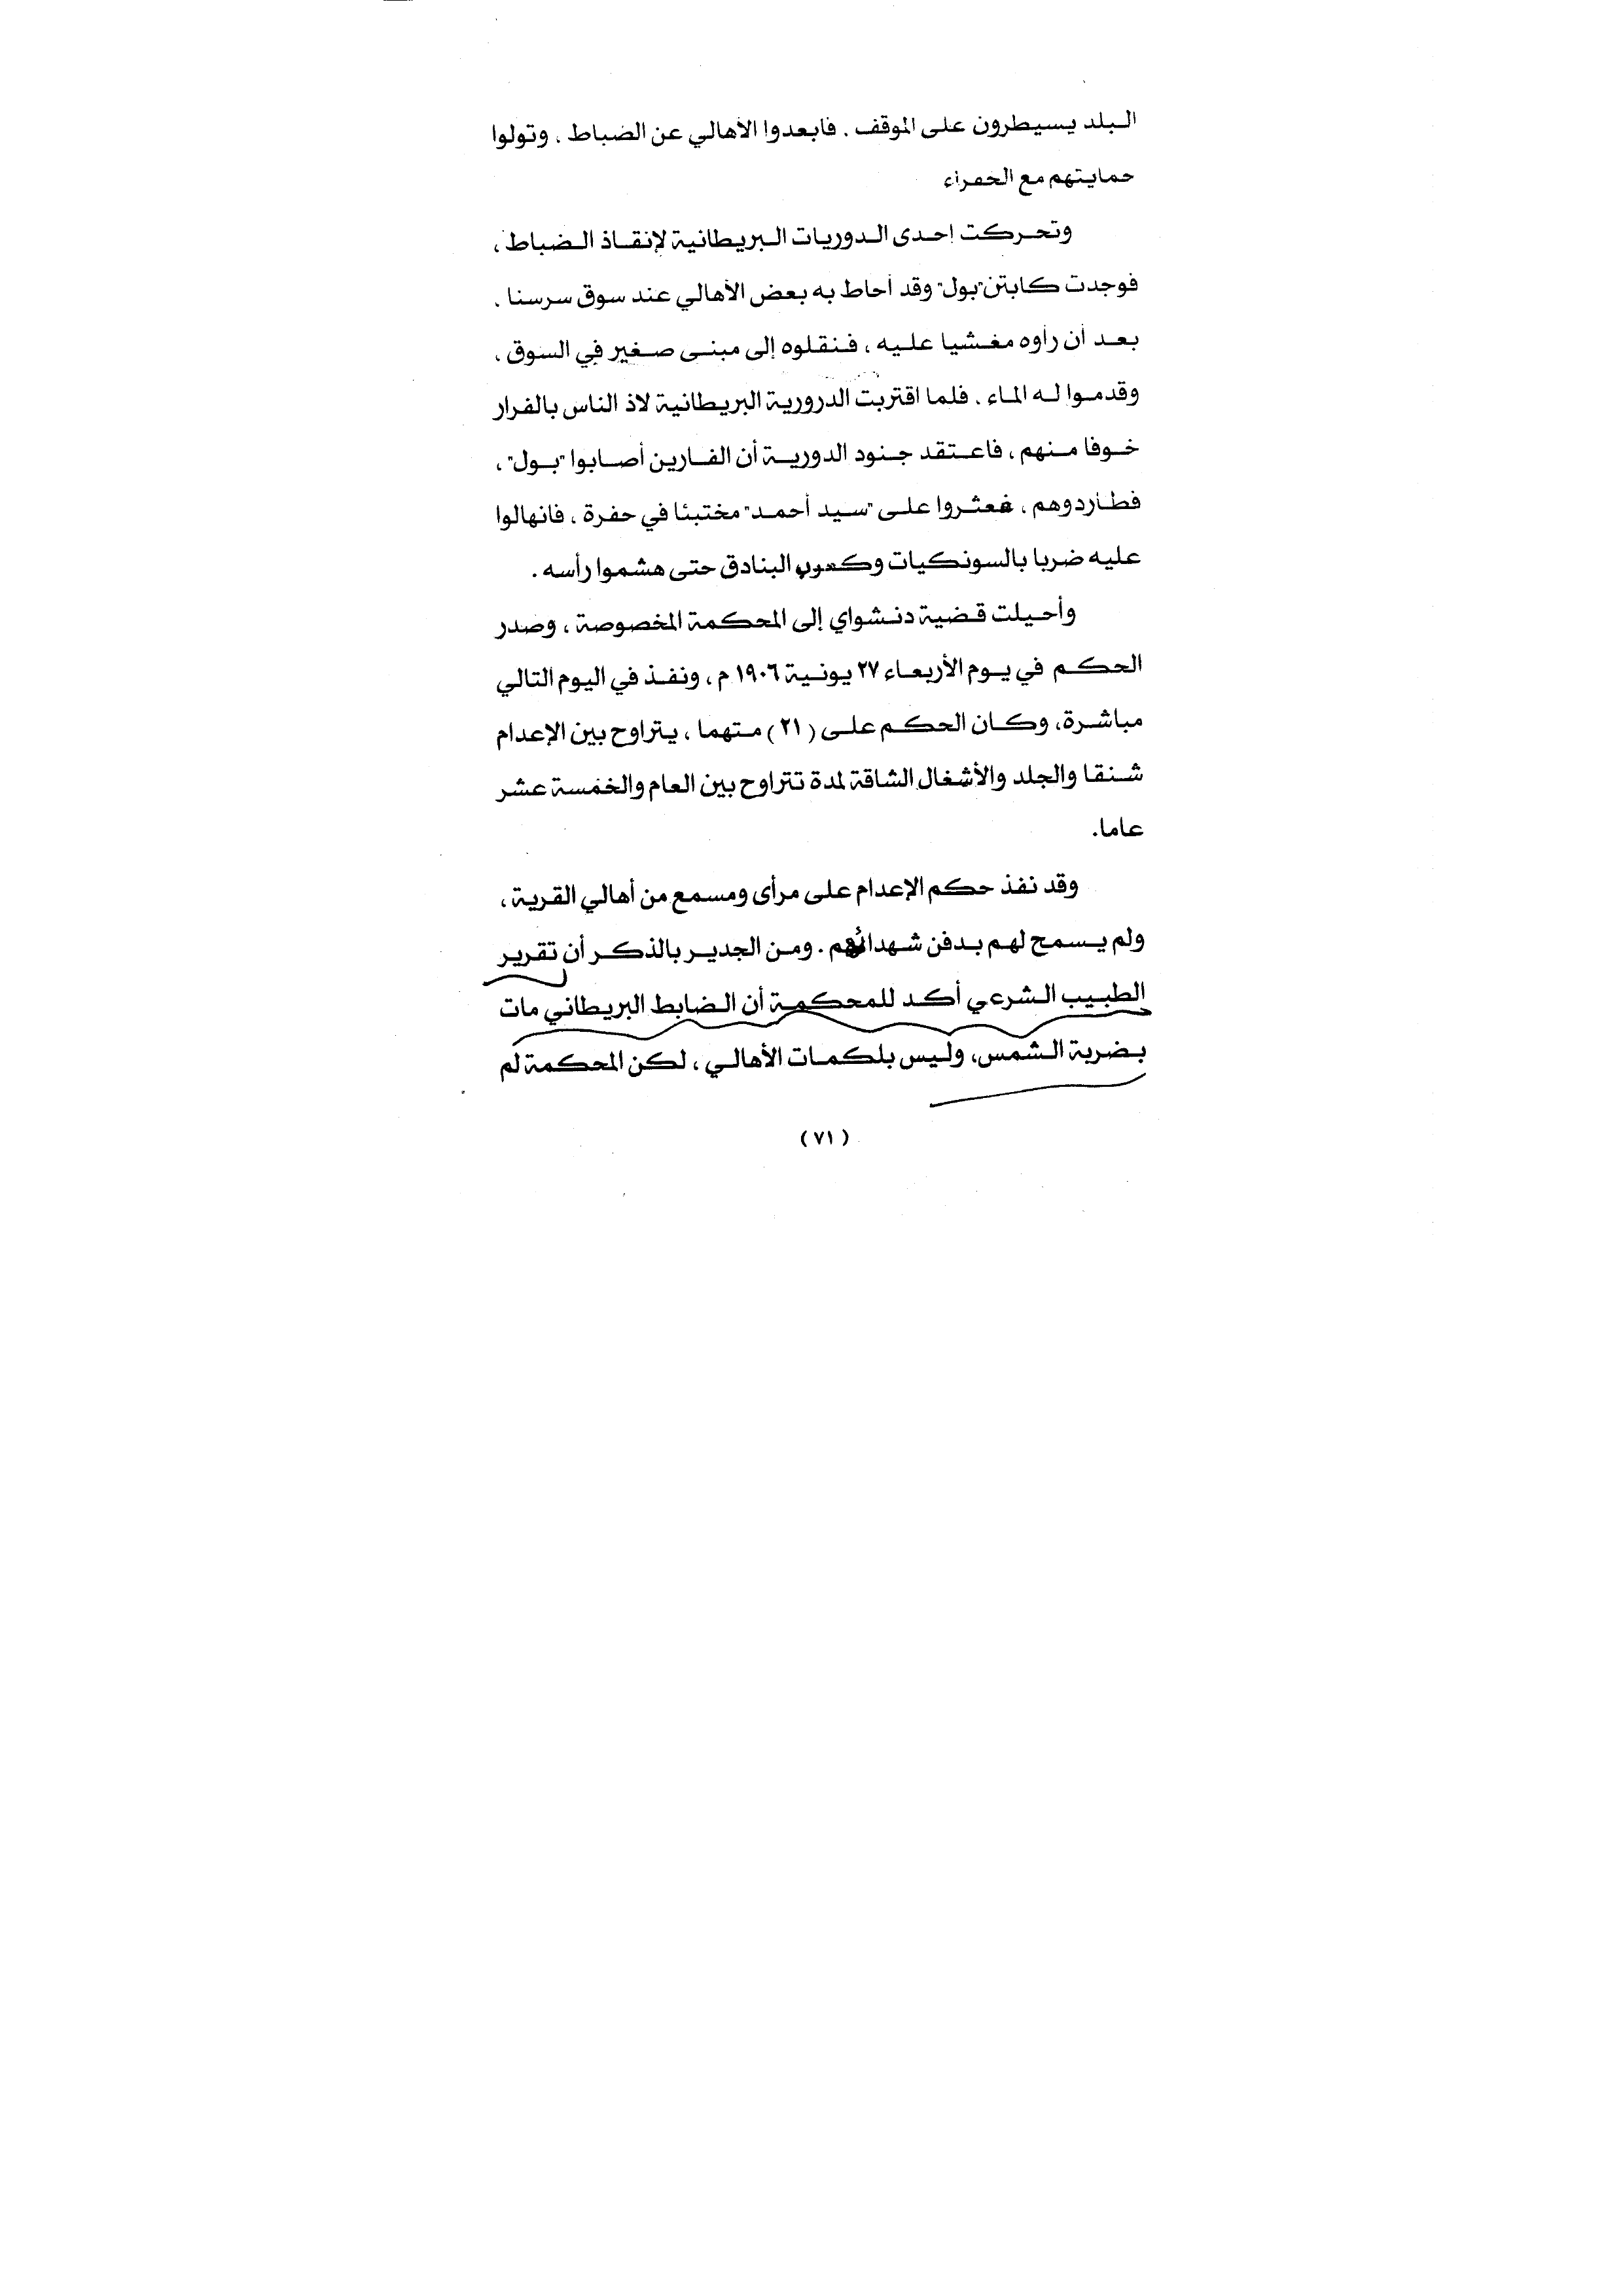 البلد يسيطرون على الموقف . فابعدوا الأهالي عن الضباط ، وتولوا
حمايتهم مع الخفراء
وتحركت إحدى الدوريات البريطانية لإنقاذ الضباط ،
فوجدت كابتن "بول" وقد أحاط به بعض الأهالي عند سوق سرسنا ،
بعد أن رأوه مغشيا عليه ، فنقلوه إلى مبنى صغير في السوق ،
وقدموا له الماء ، فلما اقتربت الدرورية البريطانية لاذ الناس بالفرار
خوفا منهم ، فاعتقد جنود الدورية أن الفارين أصابوا "بول" ،
فطاردوهم ، فعثروا على "سيد أحمد" مختبئا في حفرة ، فانهالوا
عليه ضربا بالسونكيات وكعوب البنادق حتى هشموا رأسه .
وأحيلت قضية دنشواي إلى المحكمة المخصوصة ، وصدر
الحكم في يوم الأربعاء ٢٧ يونية ١٩٠٦ م ، ونفذ في اليوم التالي
مباشرة، وكان الحكم على (٢١) متهما ، يتراوح بين الإعدام
شنقا والجلد والأشغال الشاقة لمدة تتراوح بين العام والخمسة عشر
عاما.
وقد نفذ حكم الإعدام على مرأى ومسمع من أهالي القرية ،
ولم يسمح لهم بدفن شهدائهم . ومن الجدير بالذكر أن تقرير
الطبيب الشرعي أكد للمحكمة أن الضابط البريطاني مات
بضربة الشمس، وليس بلكمات الأهالي ، لكن المحكمة لم
(٧١)